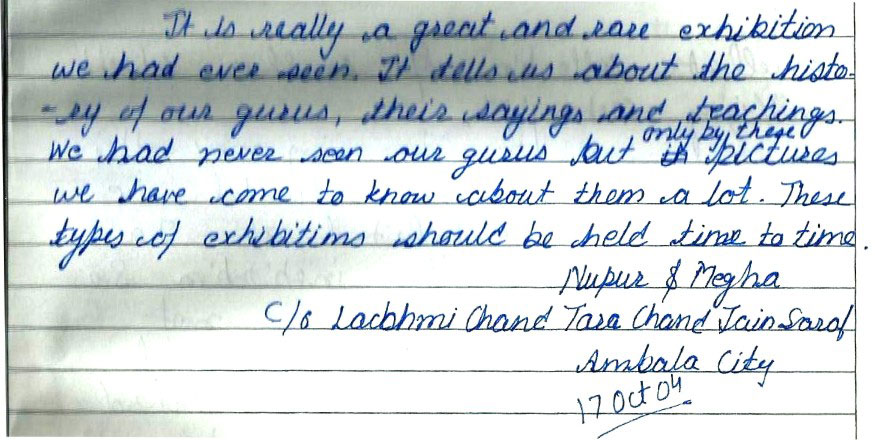 It is really a great and rare exhibition
we had ever seen. It tells us about the histo-
-ry of our gurus, their sayings and teachings.
We had never seen our gurus but only by these pictures
we have come to know about them a lot. These
types of exhibitions should be held time to time.
Nupur & Megha
C/o Lackhmi Chand Tara Chand Jain Saraf
Ambala City
17 Oct 04